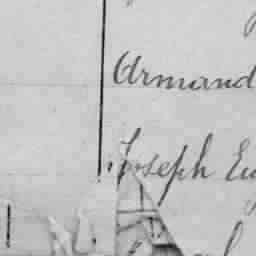 Armand
Joseph Eu